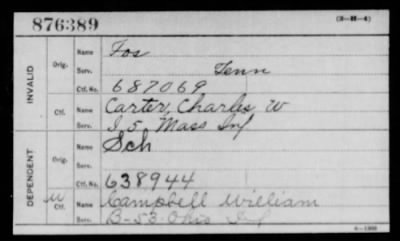 876389
(3-H-4)
INVALID
Orig. Name Fos
Serv. Tenn
Ctf. No. 687069
Ctf. Name Carter, Charles W
Serv. I 5 Mass Inf
DEPENDENT
Orig. Name Sch
Serv.
Ctf. No. 638944
M Ctf. Name Campbell William
Serv. B-53 Ohio Inf